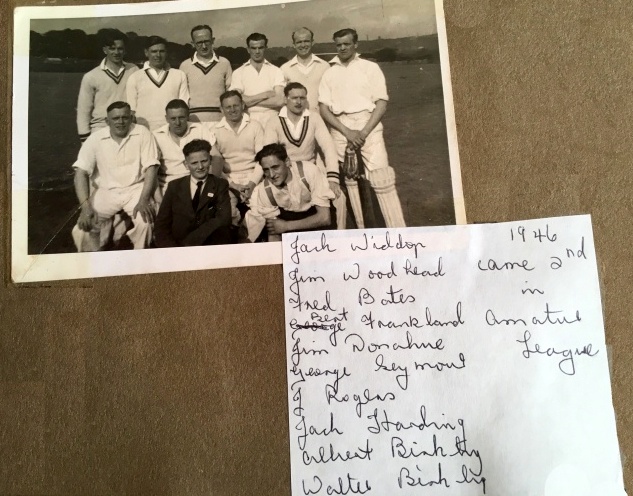 Jack Widdop 1946
Jim Woodhead came 2nd
Fred Bates in
Bert
George Frankland Amatue
Jim Donahue League
George Seymour
J Rogers
Jack Harding
Albert Binkley
Walter Binkley